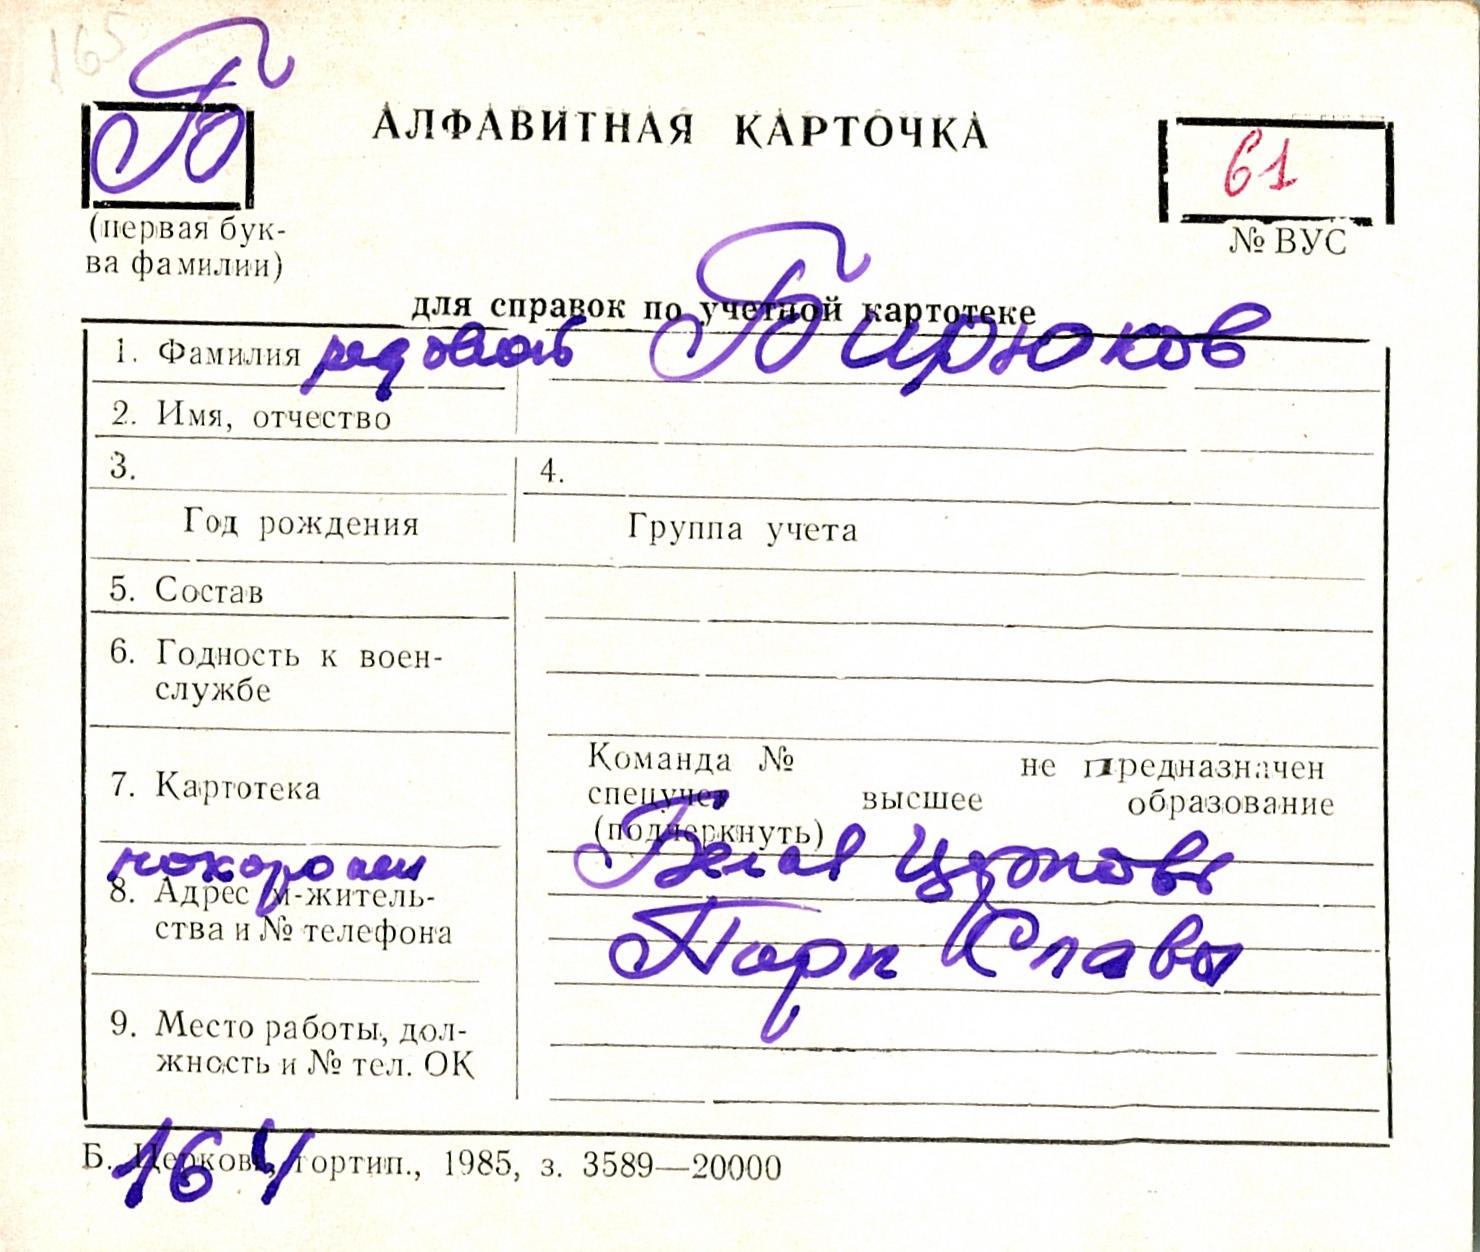 165
Б
АЛФАВИТНАЯ КАРТОЧКА
61
(первая бук-
ва фамилии)
№ ВУС
для справок по учетной картотеке
1. Фамилия рядовой Бирюков
2. Имя, отчество
3.
4.
Год рождения
Группа учета
5. Состав
6. Годность к воен-
службе
7. Картотека
Команда № не предназначен
спецучет высшее образование
(подчеркнуть)
похоронен Белая Церковь
8. Адрес м-житель-
ства и № телефона
Парк Славы
9. Место работы, дол-
жность и № тел. ОК
164
Б. Церковь, гортип., 1985, з. 3589—20000